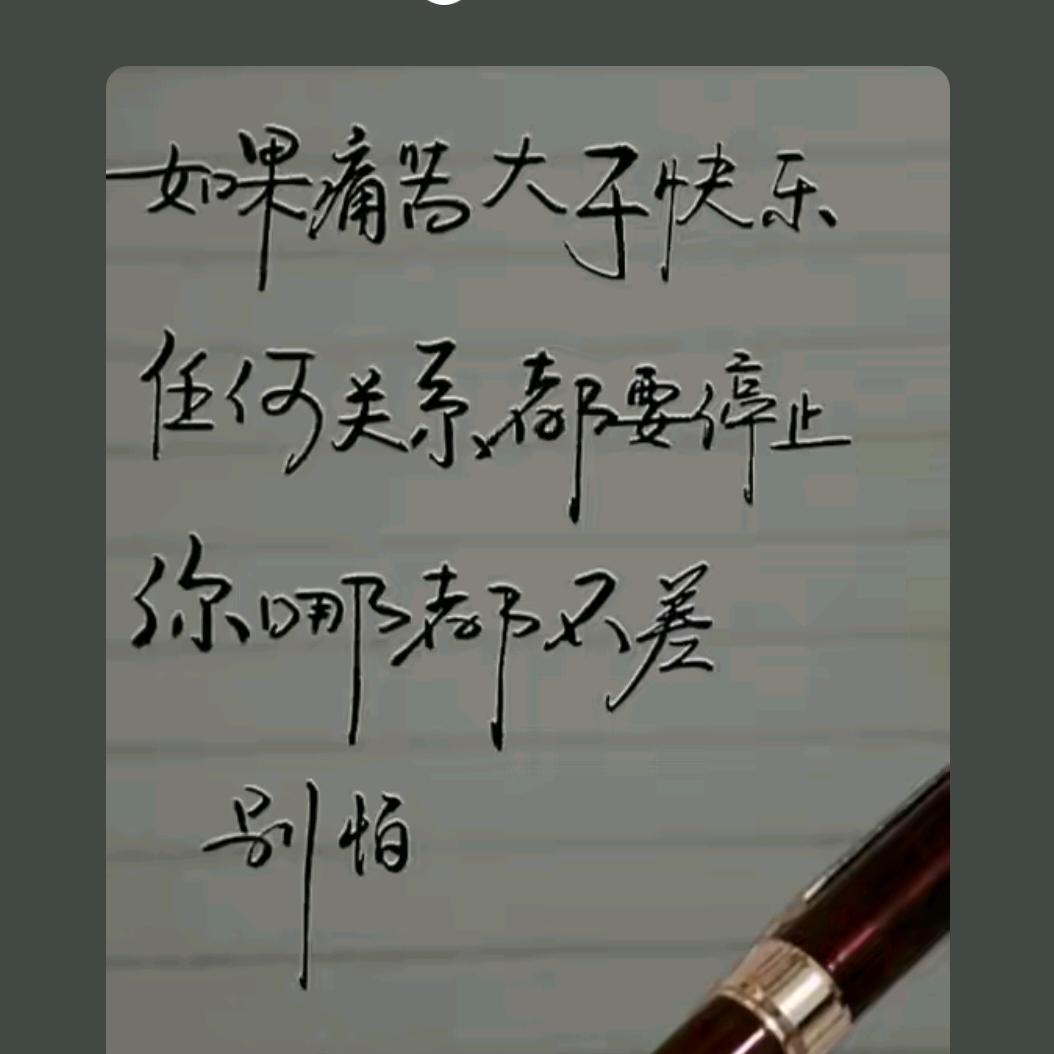 如果痛苦大于快乐
任何关系都要停止
你哪都不差
别怕